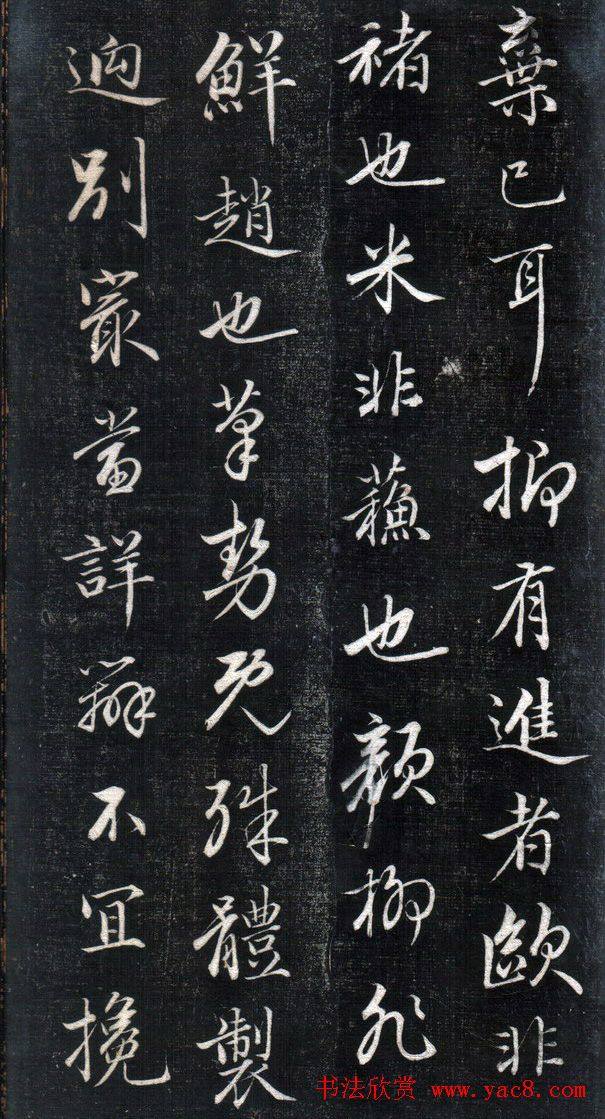 棄已耳抑有進者歐非
褚也米非蘓也顏柳非
鮮趙也筆勢既殊體製
迥別最當詳辨不宜攙
书法欣赏 www.yac8.com